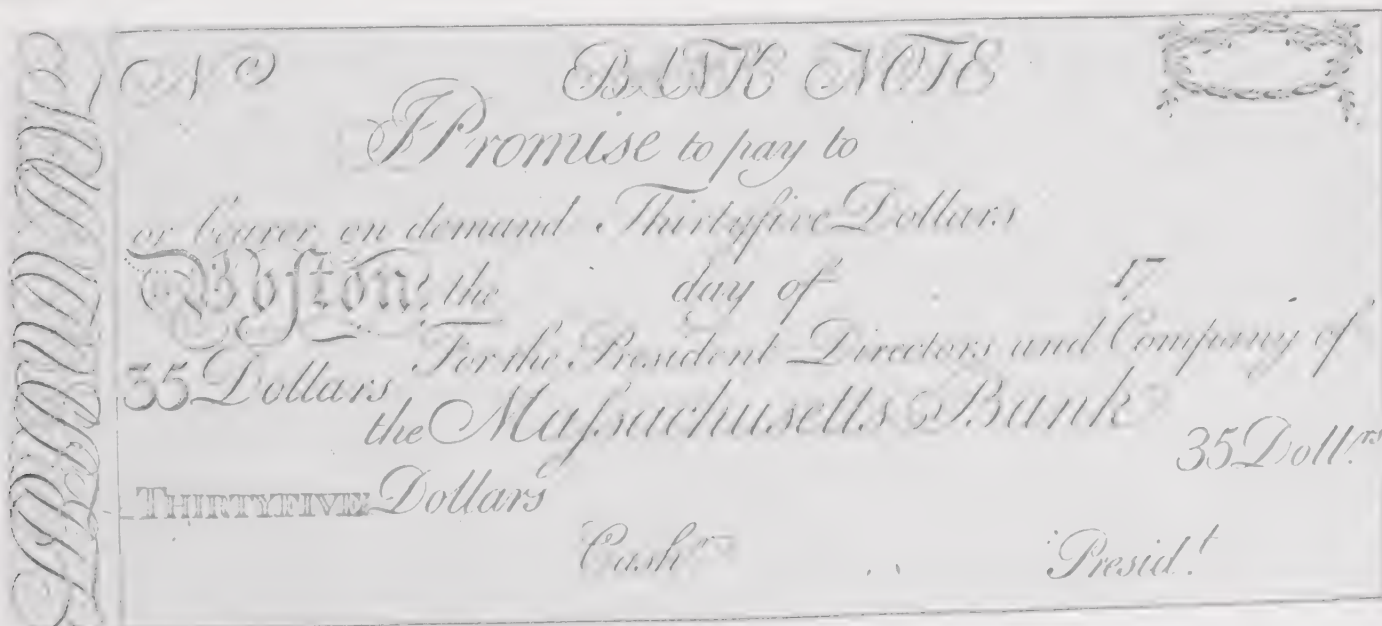 No BANK NOTE
I Promise to pay to
or bearer on demand Thirtyfive Dollars
Boſton, the day of 17
35 Dollars For the President Directors and Company of
the Maſsachusetts Bank
35 Doll.rs
THIRTYFIVE Dollars
Cashr Presid.t